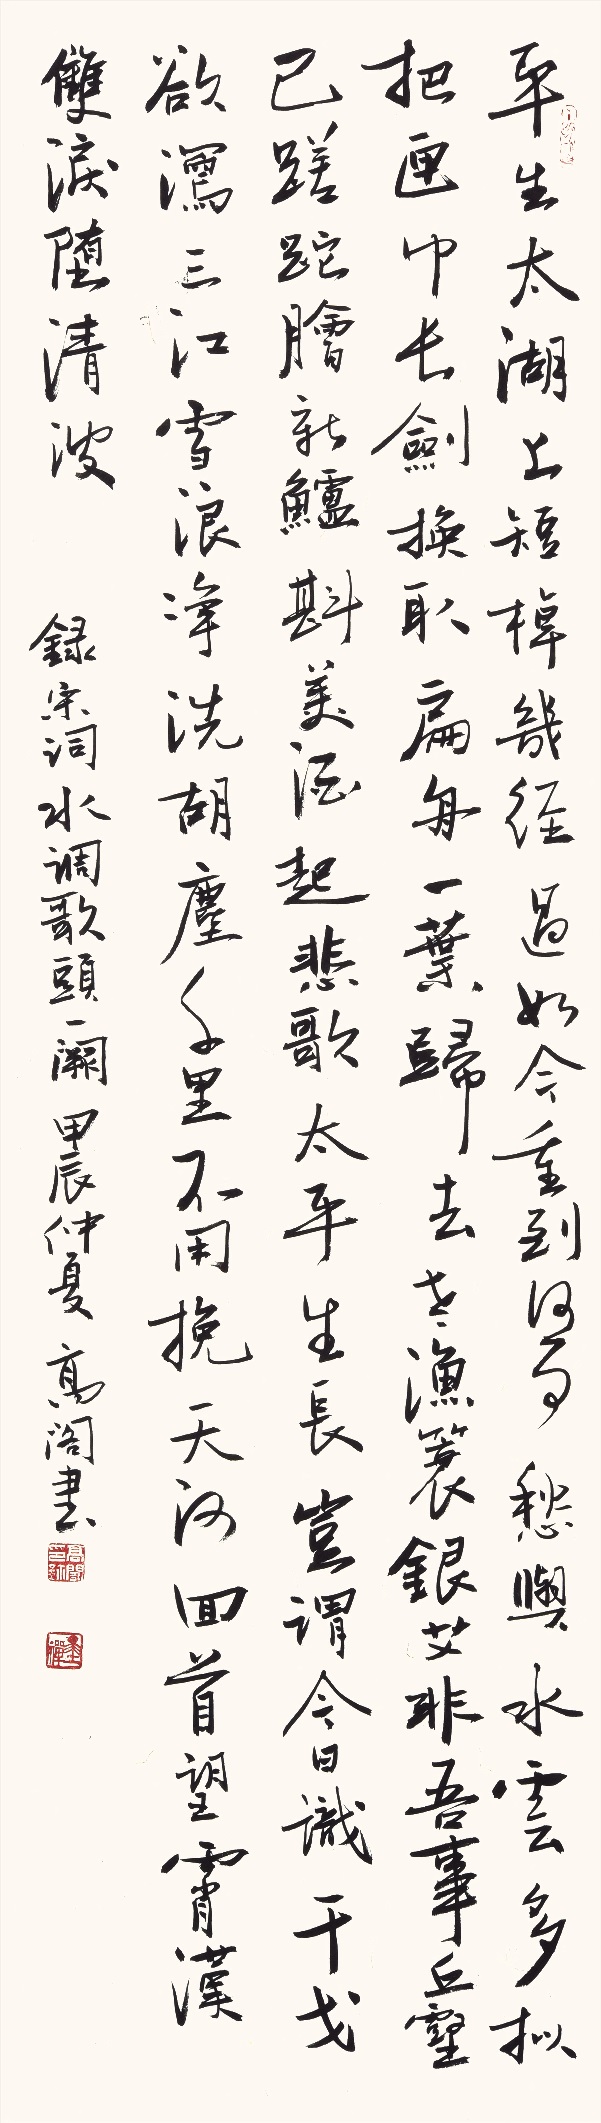 平生太湖上短棹幾經過如今重到何事愁與水雲多拟
把匣中长劍换取扁舟一葉歸去老漁蓑銀艾非吾事丘壑
已蹉跎膾新鱸斟美酒起悲歌太平生長豈謂今日識干戈
欲瀉三江雪浪淨洗胡塵千里不用挽天河回首望霄漢
雙淚堕清波
録宋词水调歌頭一闋甲辰仲夏高阁書